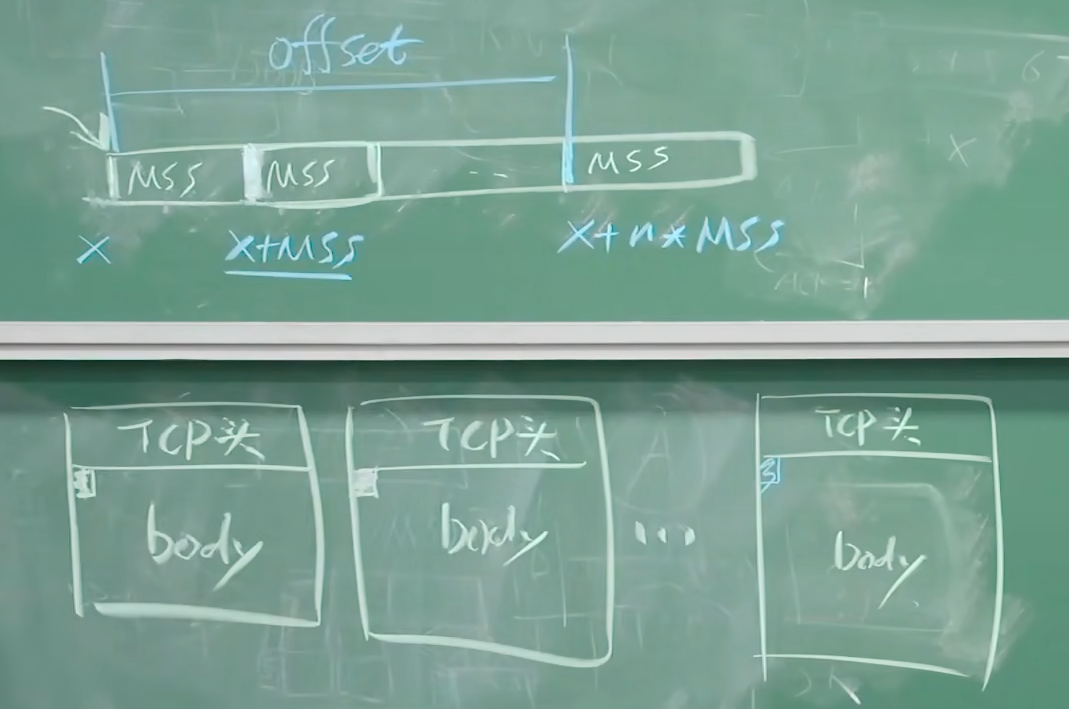 offset
MSS MSS ... MSS
x x+MSS x+n*MSS
x
TCP头 TCP头 TCP头
3
body body ... body